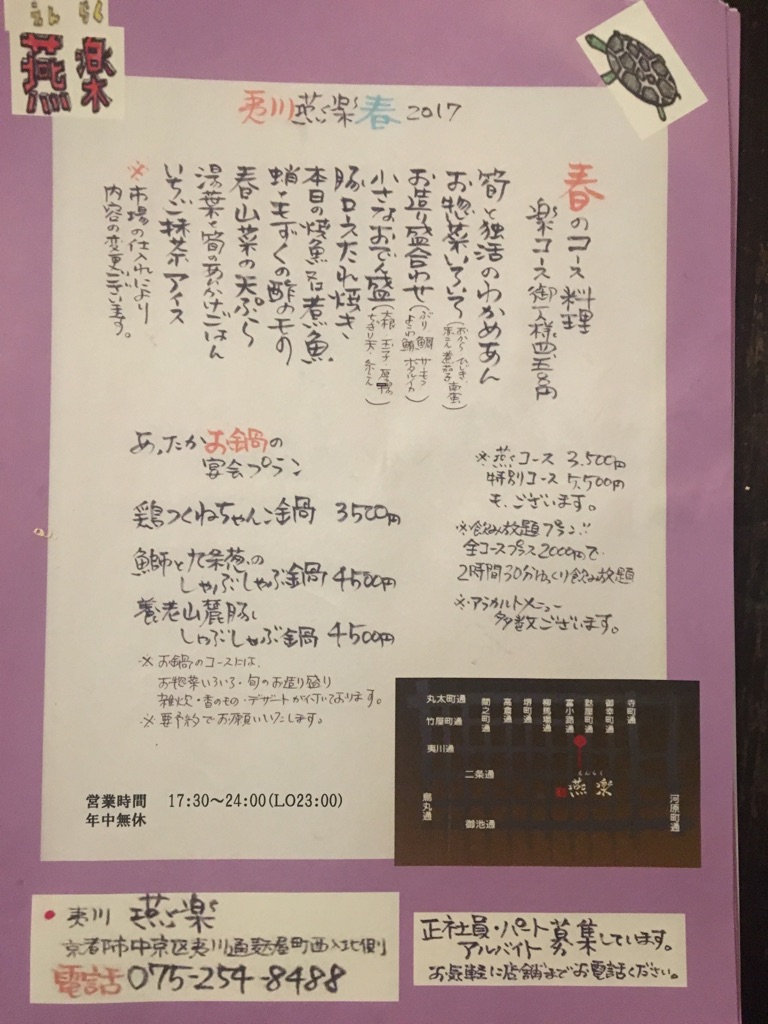 えんらく
燕楽
夷川燕楽春2017
春のコース料理
楽コース御一人様四、五〇〇円
筍と独活のわかめあん
お惣菜いろいろ
お造り盛合わせ(ぶり 鯛 サーモン
よこわ鮪 ホタルイカ)
小さなおでん盛
豚ロースたれ焼き
本日の焼魚又は煮魚
蛸ともずくの酢のもの
春山菜の天ぷら
湯葉と筍のあんかけごはん
いちご抹茶アイス
※市場の仕入れにより
内容の変更ございます。
※燕コース 3.500円
特別コース 5,500円
も、ございます。
※飲み放題プラン!!
全コースプラス2000円で
2時間30分ゆっくり飲み放題
※アラカルトメニュー
多数ございます。
あったかお鍋の
宴会プラン
鶏つくねちゃんこ鍋 3500円
鰤と九条葱の
しゃぶしゃぶ鍋 4500円
養老山麓豚
しゃぶしゃぶ鍋 4500円
※お鍋のコースには、
お惣菜いろいろ・旬のお造り盛り
雑炊・香のもの・デザートが付いております。
※要予約でお願いいたします。
営業時間 17:30～24:00(LO23:00)
年中無休
丸太町通
竹屋町通
夷川通
二条通
御池通
烏丸通
間之町通
高倉通
堺町通
柳馬場通
富小路通
麩屋町通
御幸町通
寺町通
河原町通
えんらく
燕楽
夷川 燕楽
京都市中京区夷川通麩屋町西入北側
電話075-254-8488
正社員・パート
アルバイト募集しています。
お気軽に店舗までお電話ください。